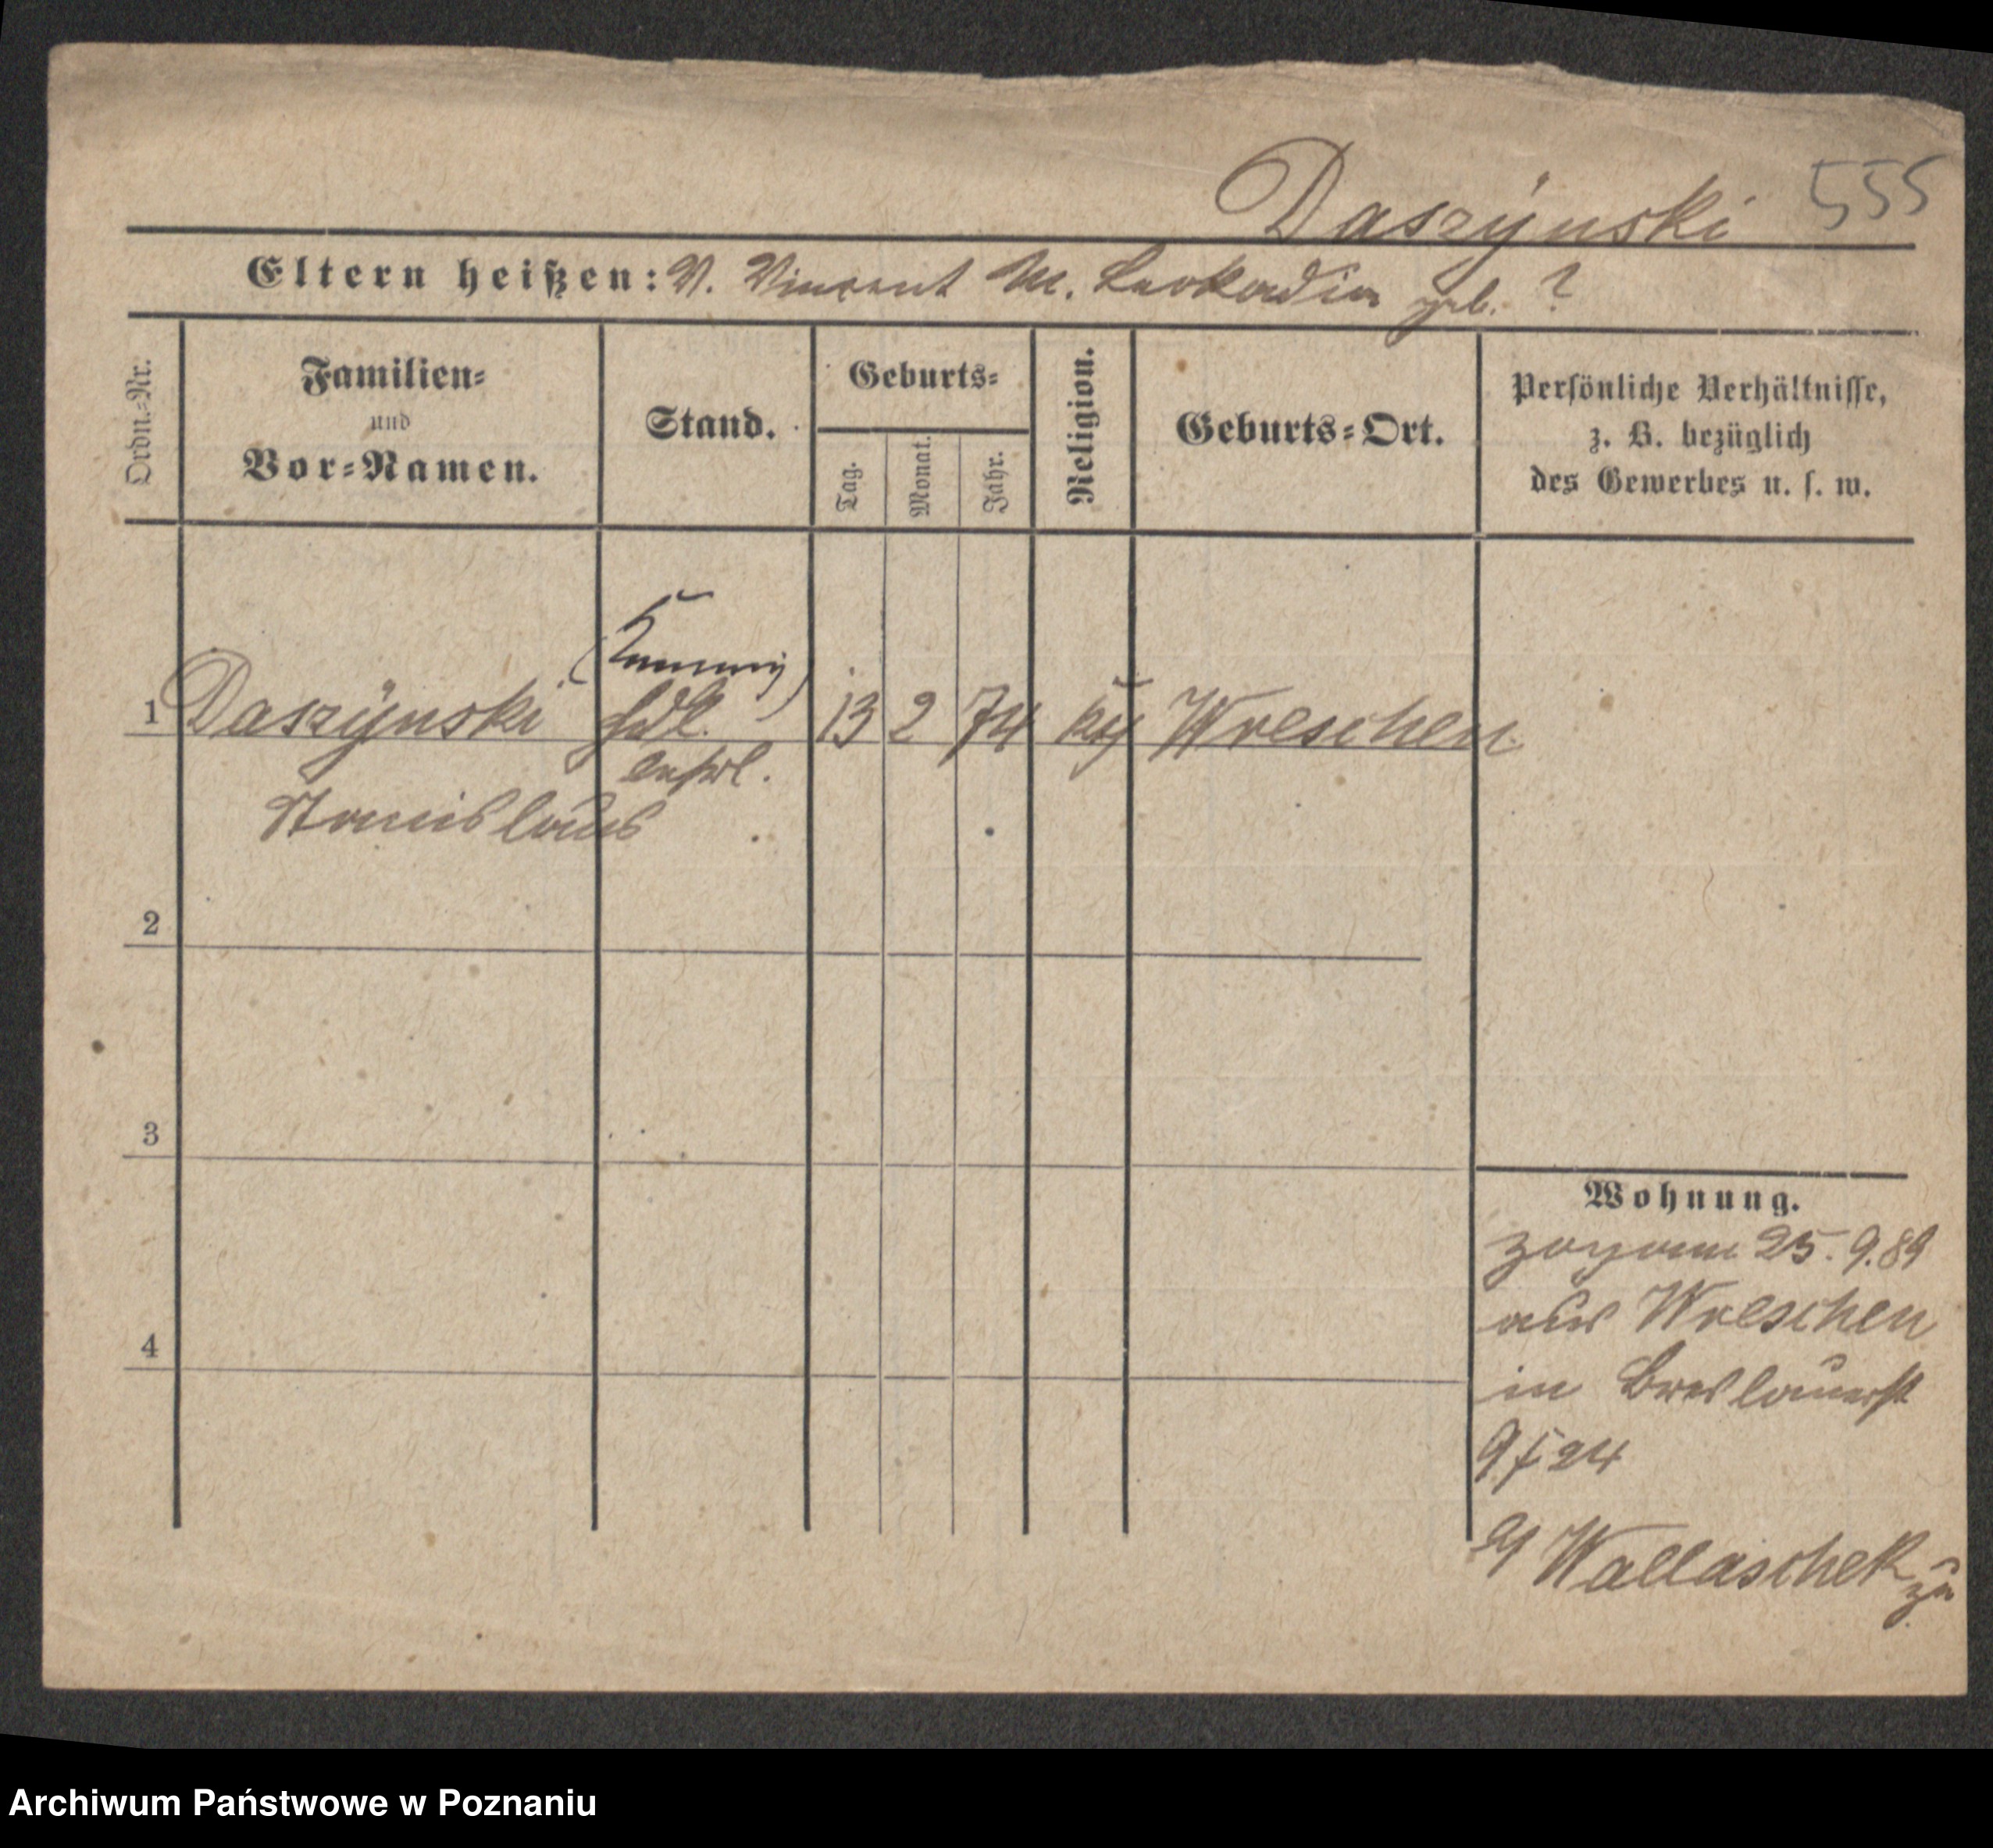 Daszÿnski 555
Eltern heißen: V. Vincent M. Leokadia geb. ?
Ordn.-Nr.
Familien-
und
Vor-Namen.
Stand.
Geburts-
Tag.
Monat.
Jahr.
Religion.
Geburts-Ort.
Persönliche Verhältnisse,
z. B. bezüglich
des Gewerbes u. s. w.
1 Daszÿnski hdl. 13 2 74 Wreschen
lehrl.
Stanislaus
2
3
4
Wohnung.
zog am 25. 9. 89
aus Wreschen
in Breslauerst
9 f 24
Wallaschek zu
Archiwum Państwowe w Poznaniu